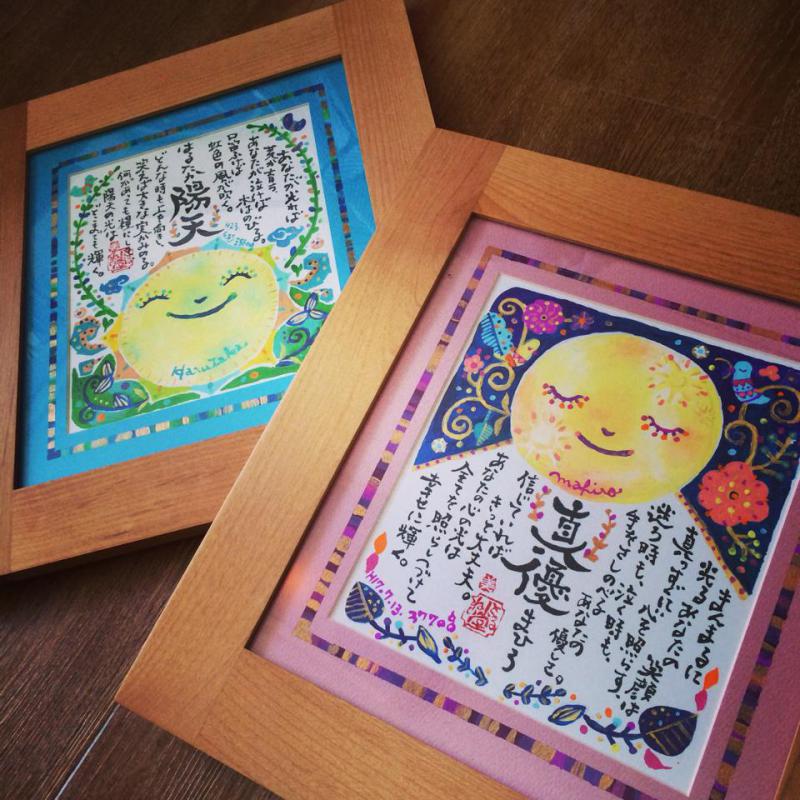 あなたが光れば
芽が育つ。
あなたが泣けば
木はのびる。
虹色の風が吹く。
はるたか
陽天
どんな時も上を向き、
笑えば大きな実がみのる。
何があっても糧にして
陽天の光は
どこまでも輝く。
Harutaka
mahiro
まんまるに
光るあなたの
笑顔は
真っすぐに心を照らす、
迷う時も、泣く時も、
手をさしのべる
あなたの優しさ。
真優
まひろ
信じていれば
きっと大丈夫。
あなたの心の光は
全てを照らしつづけて
幸せに輝く。
H17.7.13. 3770g